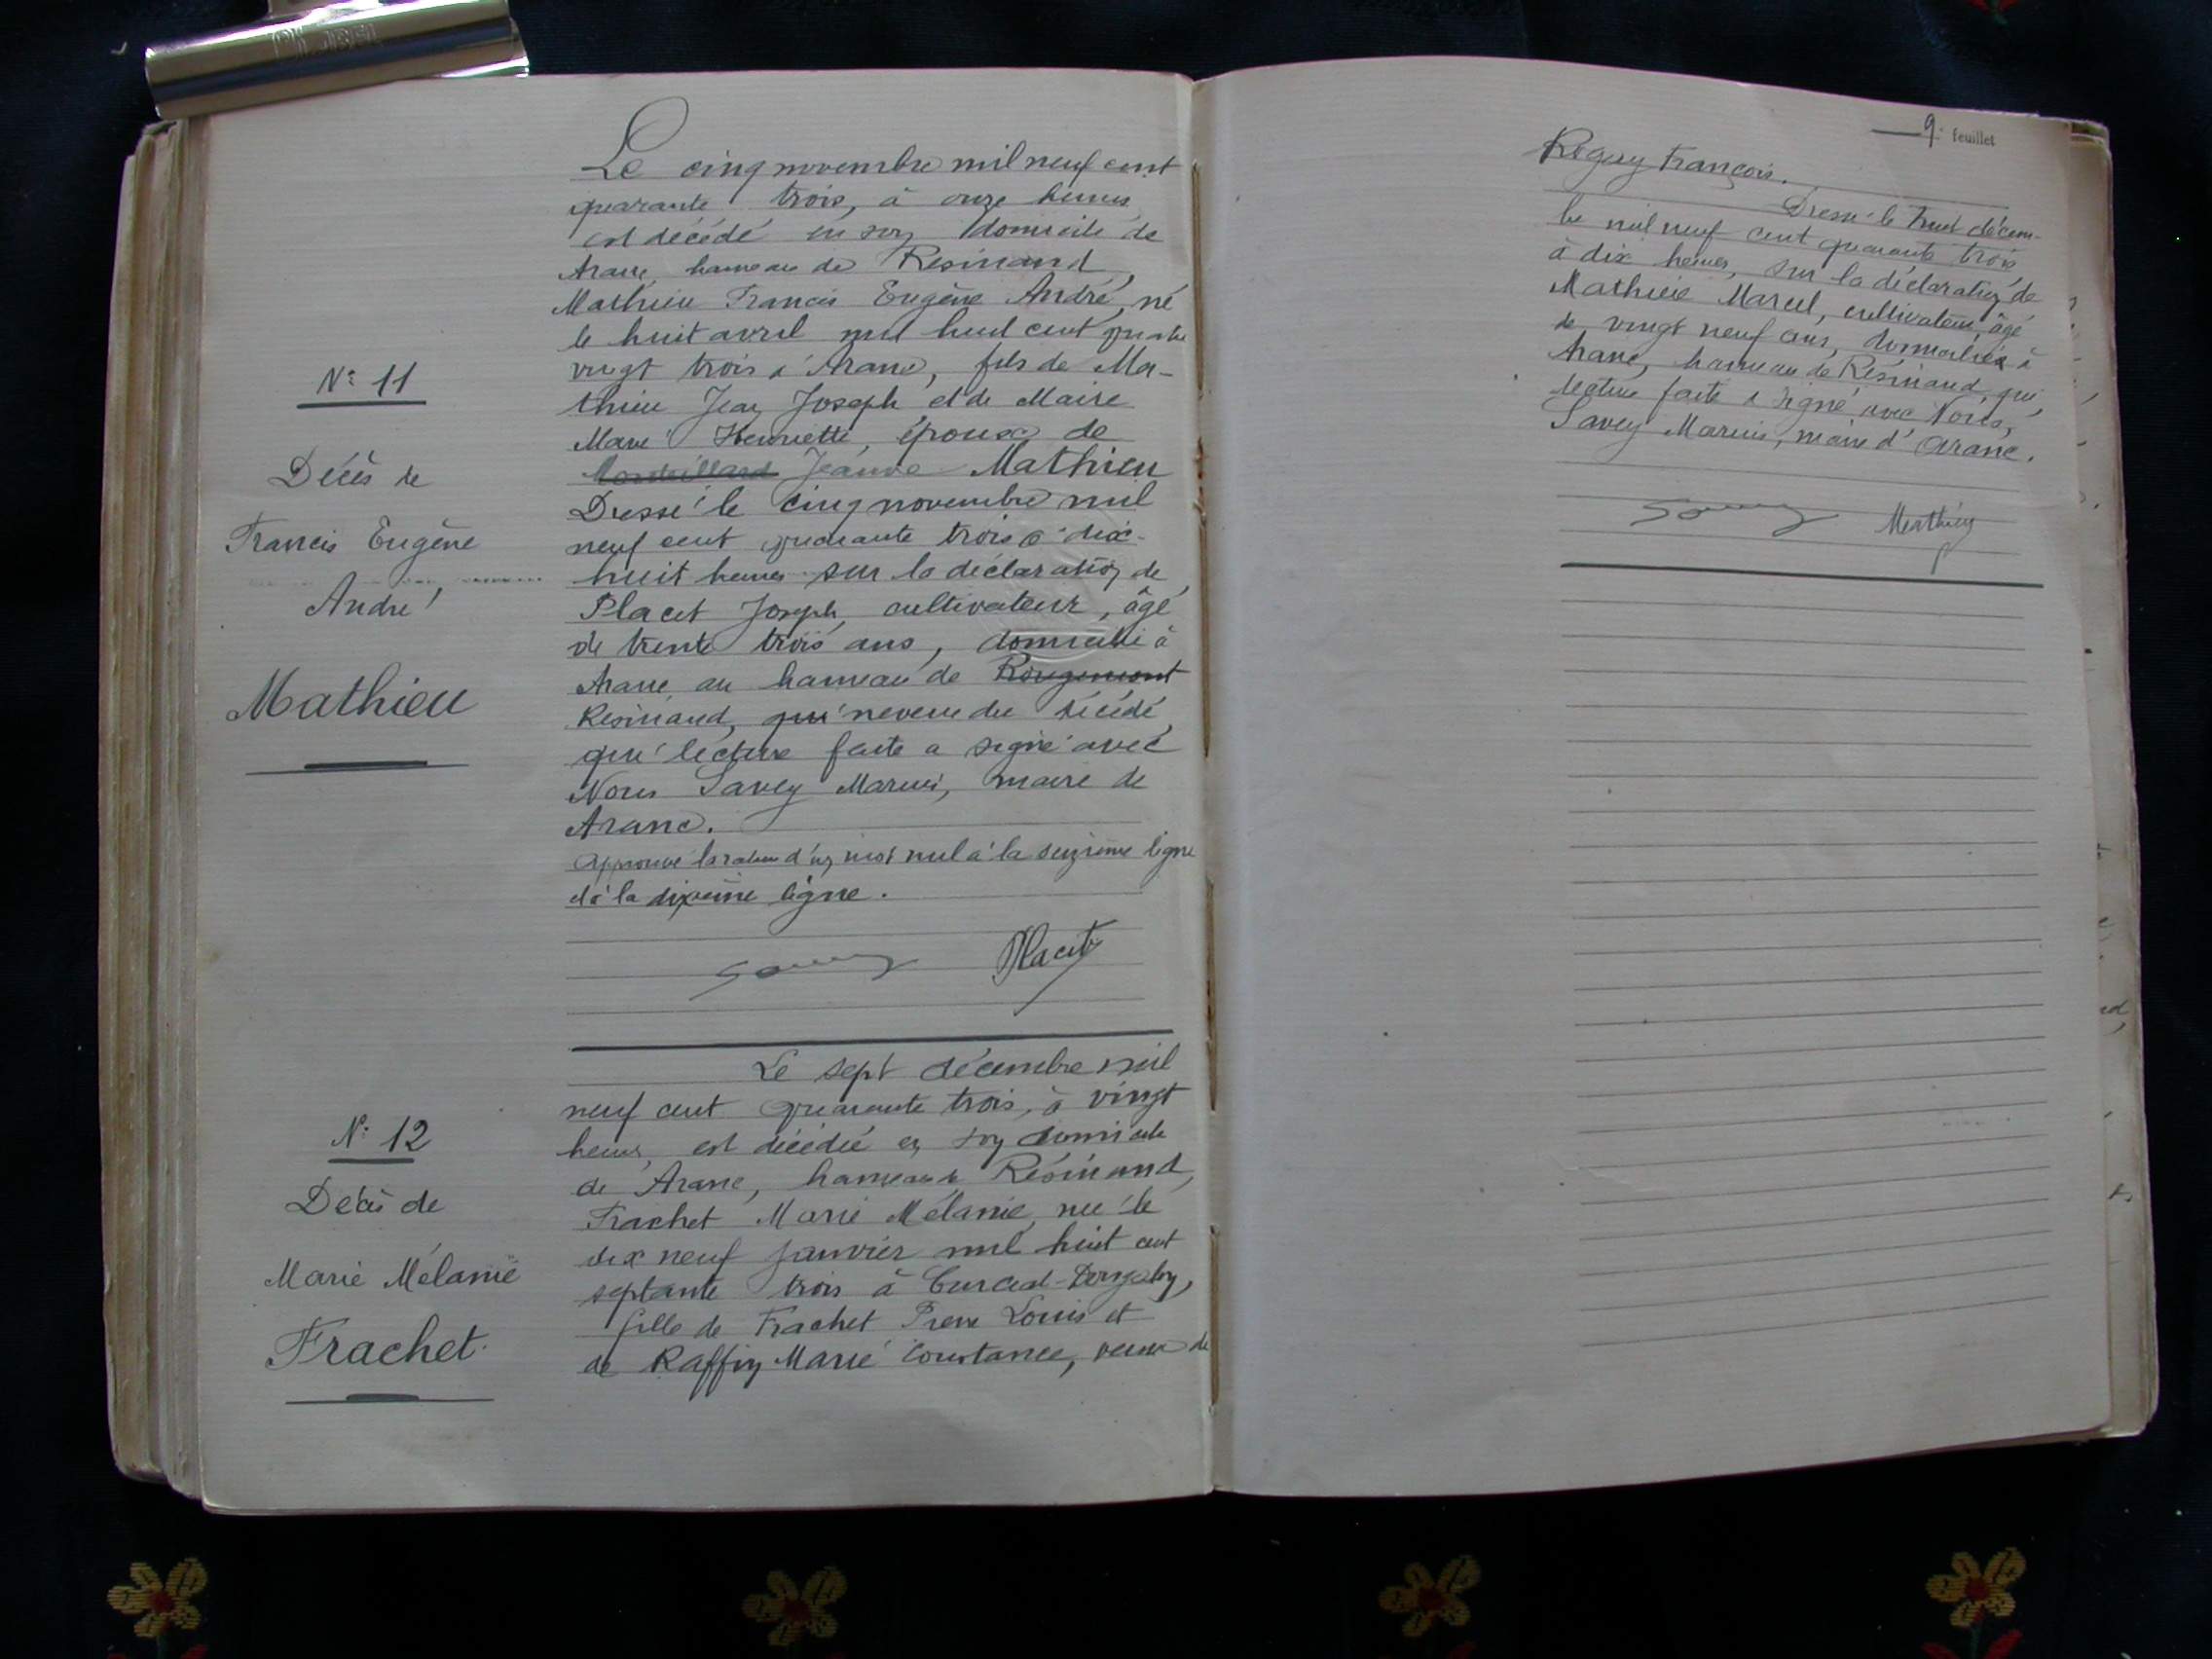 N° 11
Décès de
Francis Eugène
André
Mathieu
Le cinq novembre mil neuf cent
quarante trois, à onze heures
est décédé en son domicile de
Aranc, hameau de Résinand,
Mathieu Francis Eugène André, né
le huit avril mil huit cent quatre
vingt trois à Aranc, fils de Ma-
thieu Jean Joseph et de Maire
Marie Henriette, époux de
Jeanne Mathieu
Dressé le cinq novembre mil
neuf cent quarante trois à dix-
huit heures sur la déclaration de
Placet Joseph, cultivateur, âgé
de trente trois ans, domicilié à
Aranc au hameau de Rougemont
Résinand, qui neveu du décédé,
qui lecture faite a signé avec
Nous Savey Marius, maire de
Aranc.
Approuvé la rature d'un mot nul à la seizième ligne
et à la dixième ligne.
Savey Placet
N° 12
Décès de
Marie Mélanie
Frachet
Le sept décembre mil
neuf cent quarante trois, à vingt
heures, est décédée en son domicile
de Aranc, hameau de Résinand,
Frachet Marie Mélanie, née le
dix neuf janvier mil huit cent
septante trois à
fille de Frachet Pierre Louis et
de Raffin Marie Constance, veuve de
9e feuillet
Roguy François.
Dressé le huit décem-
bre mil neuf cent quarante trois
à dix heures, sur la déclaration de
Mathieu Marcel, cultivateur, âgé
de vingt neuf ans, domicilié à
Aranc, hameau de Résinand, qui,
lecture faite a signé avec Nous,
Savey Marius, maire d'Aranc.
Savey Mathieu